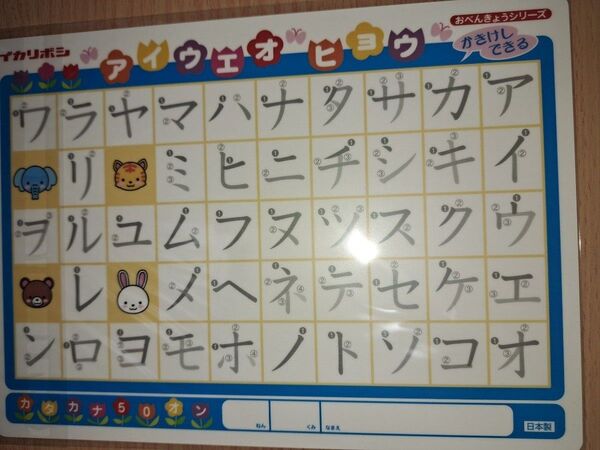 イカリボシ
アイウエオ ヒョウ
おべんきょうシリーズ
かきけし
できる
ワ ラ ヤ マ ハ ナ タ サ カ ア
リ ミ ヒ ニ チ シ キ イ
ヲ ル ユ ム フ ヌ ツ ス ク ウ
レ メ ヘ ネ テ セ ケ エ
ン ロ ヨ モ ホ ノ ト ソ コ オ
カタカナ50オン
ねん くみ なまえ
日本製